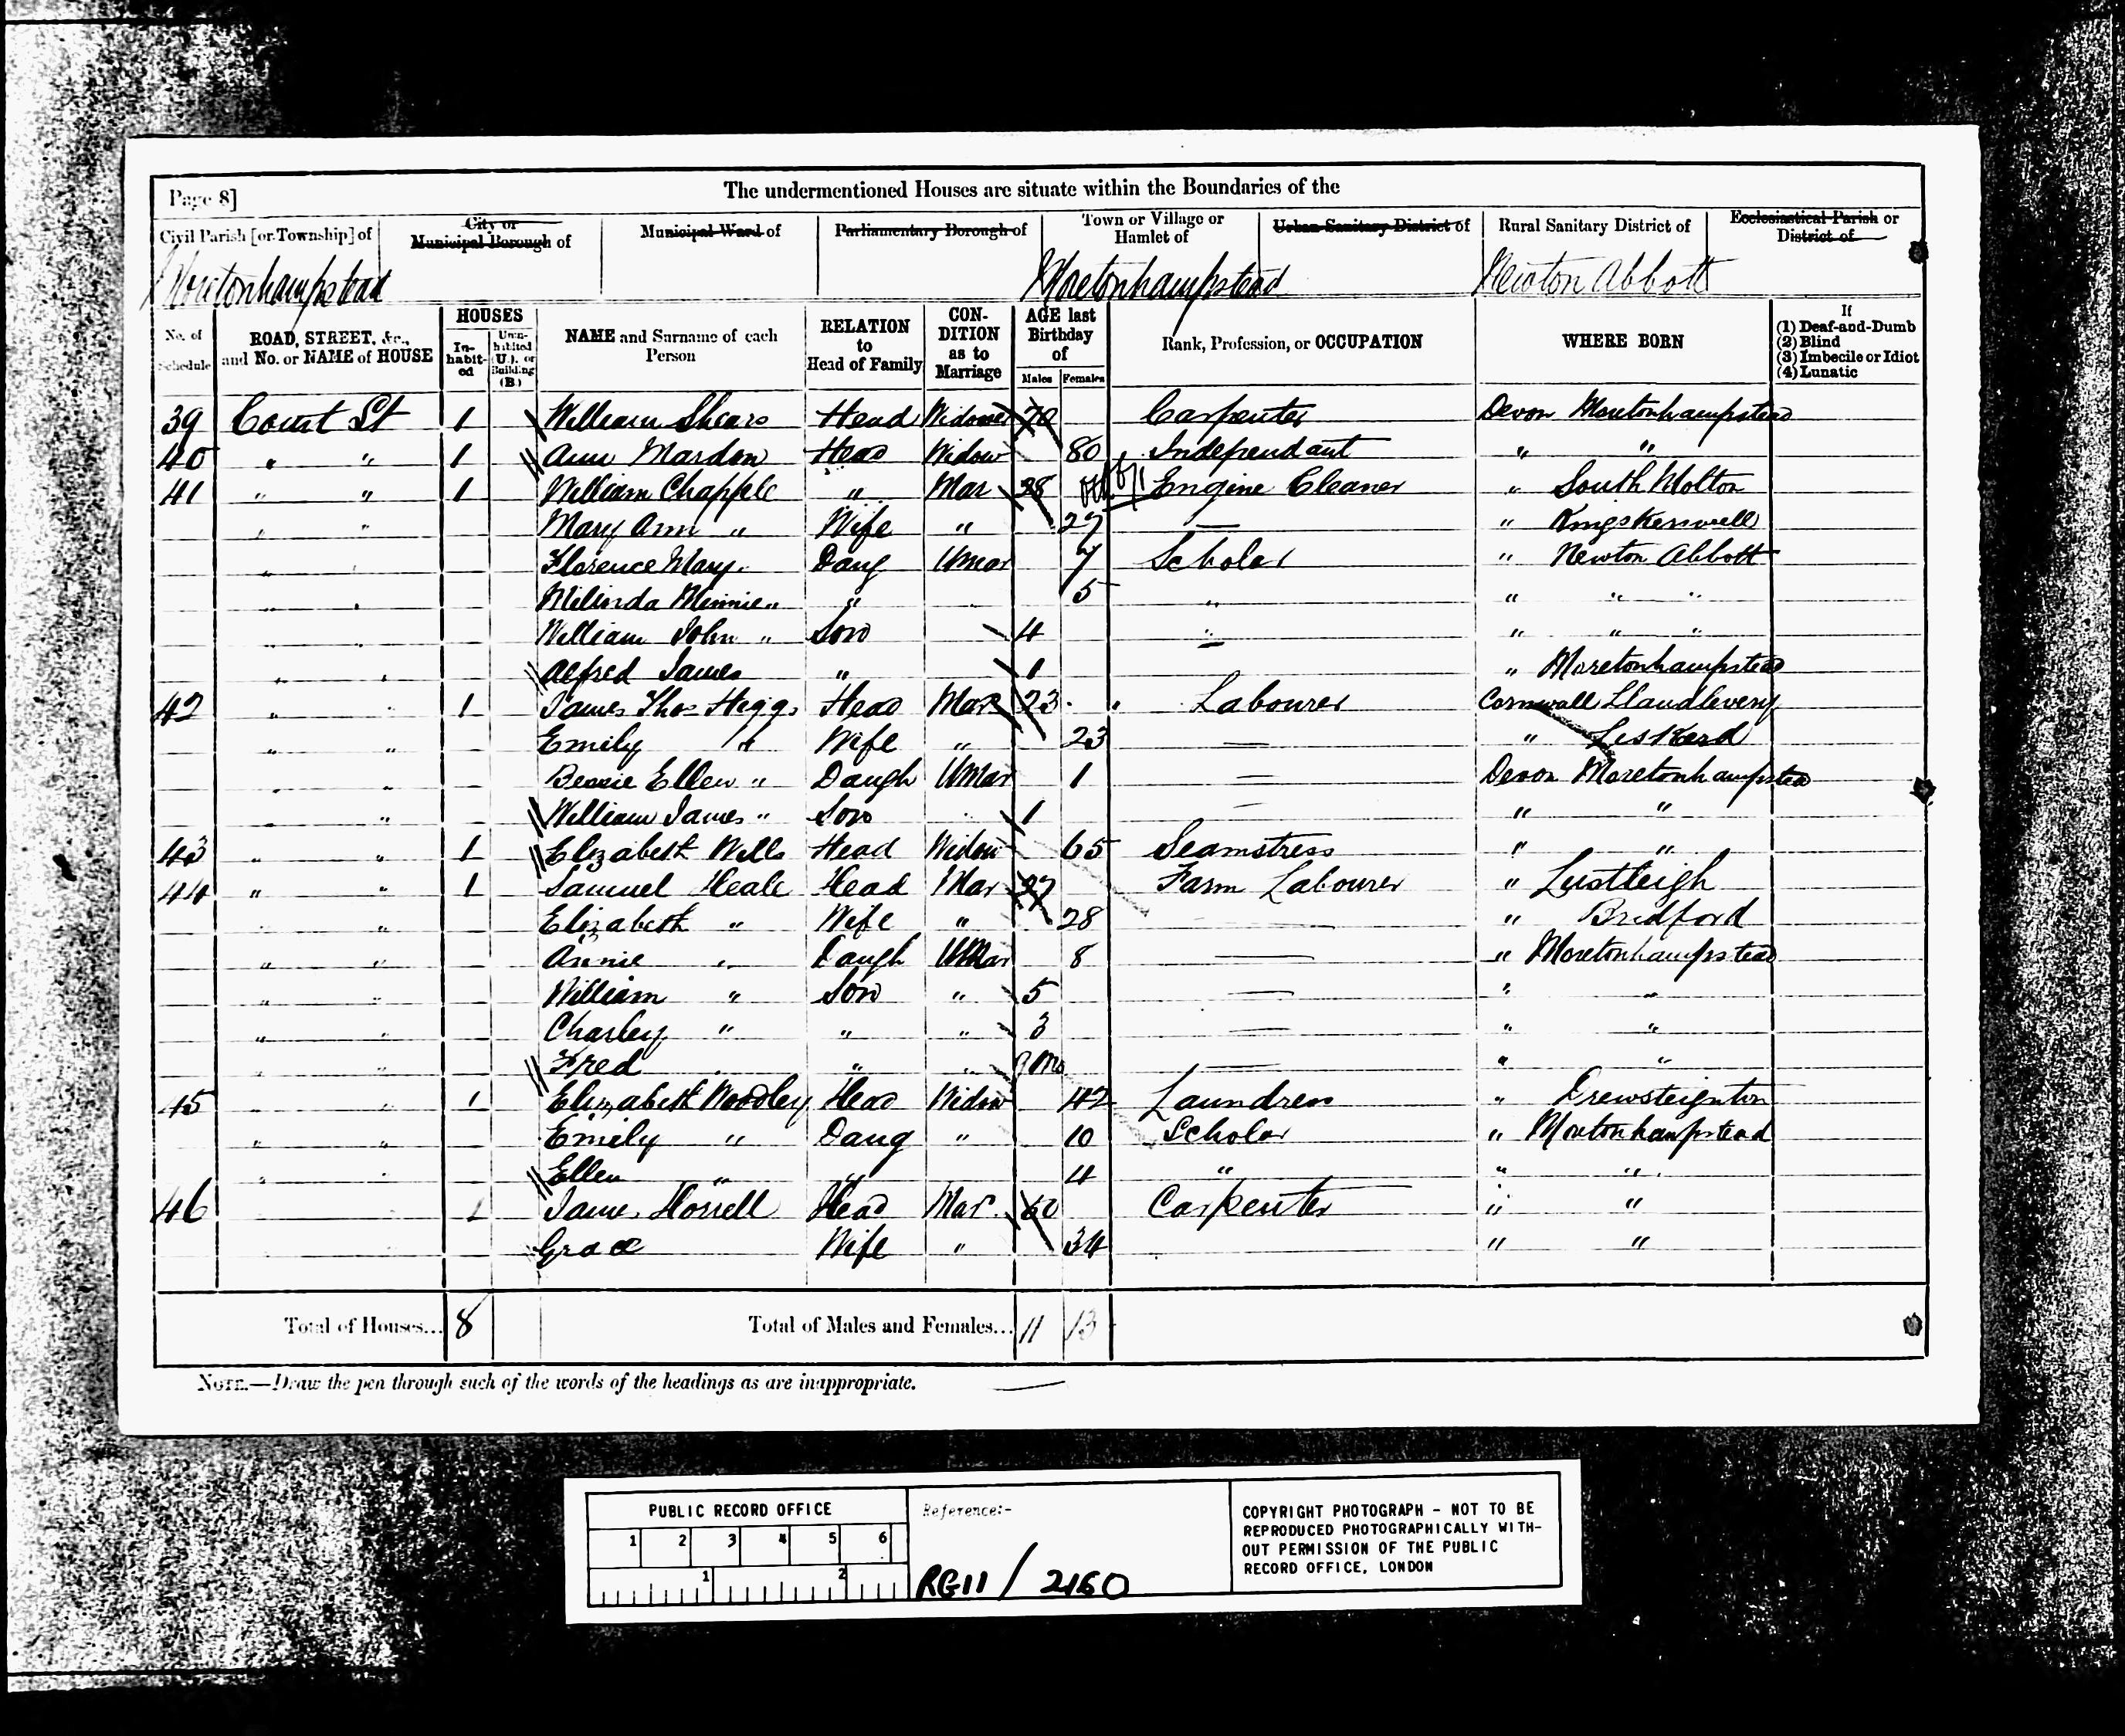 Page 8]
The undermentioned Houses are situate within the Boundaries of the
Civil Parish [or Township] of City or Municipal Borough of Municipal Ward of Parliamentary Borough of Town or Village or Hamlet of Urban Sanitary District of Rural Sanitary District of Ecclesiastical Parish or District of
Moretonhampstead Moretonhampstead Newton Abbott
No. of Schedule ROAD, STREET, &c., and No. or NAME of HOUSE HOUSES Inhabited Uninhabited (U.), or Building (B.) NAME and Surname of each Person RELATION to Head of Family CONDITION as to Marriage AGE last Birthday of Males Females Rank, Profession, or OCCUPATION WHERE BORN If (1) Deaf-and-Dumb (2) Blind (3) Imbecile or Idiot (4) Lunatic
39 Court St 1 William Shears Head Widower 70 Carpenter Devon Moretonhampstead
40 " " 1 Ann Mardon Head Widow 80 Independant " "
41 " " 1 William Chapple " Mar 28 Engine Cleaner " South Molton
" " Mary Ann " Wife " 27 — " Kingskerswell
" Florence Mary Daug Unmar 7 Scholar " Newton Abbott
" " Milinda Minnie " " 5 " " " "
" " William John " Son 4 " " " "
" " Alfred James " 1 " Moretonhampstead
42 " " 1 James Thos Higgs Head Mar 23 Labourer Cornwall Llandlevery
" " Emily " Wife " 23 — " Leskerd
" " Bessie Ellen " Daugh Unmar 1 — Devon Moretonhampstead
" William James " Son 1 — " "
43 " " 1 Elizabeth Wills Head Widow 65 Seamstress " "
44 " " 1 Samuel Heale Head Mar 27 Farm Labourer " Lustleigh
" " Elizabeth " Wife " 28 — " Bridford
" " Annie " Daugh Unmar 8 — " Moretonhampstead
" " William " Son " 5 — " "
" " Charley " " " 3 — " "
" " Fred " " 9 Mo — " "
45 " " 1 Elizabeth Woodley Head Widow 42 Laundress " Drewsteignton
" " Emily " Daug " 10 Scholar " Moretonhampstead
" " Ellen " " 4 " " "
46 1 James Horrell Head Mar 60 Carpenter " "
Grace Wife " 34 " "
Total of Houses... 8 Total of Males and Females... 11 13
NOTE.—Draw the pen through such of the words of the headings as are inappropriate.
PUBLIC RECORD OFFICE
1 2 3 4 5 6
1 2
Reference:-
RG11 / 2160
COPYRIGHT PHOTOGRAPH - NOT TO BE
REPRODUCED PHOTOGRAPHICALLY WITH-
OUT PERMISSION OF THE PUBLIC
RECORD OFFICE, LONDON